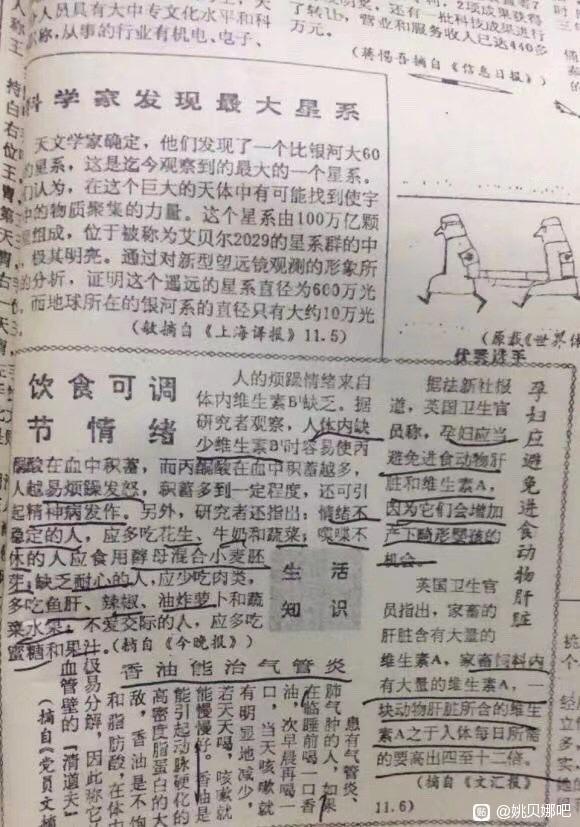 人员具有大中专文化水平和科
称，从事的行业有机电、电子、
2项成果获得
还有一批科技成果进行
了转让，营业和服务收入已达440多
万元。
（蒋惕吾摘自《信息日报》）
科学家发现最大星系
天文学家确定，他们发现了一个比银河大60
的星系，这是迄今观察到的最大的一个星系。
们认为，在这个巨大的天体中有可能找到使宇
中的物质聚集的力量。这个星系由100万亿颗
组成，位于被称为艾贝尔2029的星系群的中
极其明亮。通过对新型望远镜观测的形象所
的分析，证明这个遥远的星系直径为600万光
而地球所在的银河系的直径只有大约10万光
（敏摘自《上海译报》11.5）
（原载《世界体
优秀选手
饮食可调
节情绪
人的烦躁情绪来自
体内维生素B¹缺乏。据
研究者观察，人体内缺
少维生素B¹时容易使丙
酮酸在血中积蓄，而丙酮酸在血中积蓄越多，
人越易烦躁发怒，积蓄多到一定程度，还可引
起精神病发作。另外，研究者还指出：情绪不
稳定的人，应多吃花生、牛奶和蔬菜；唉唉不
休的人应食用酵母混合小麦胚
芽；缺乏耐心的人，应少吃肉类，
多吃鱼肝、辣椒、油炸萝卜和蔬
菜水果；不爱交际的人，应多吃
蜜糖和果汁。
（摘自《今晚报》）
生活
知识
孕妇应避免进食动物肝脏
据法新社报
道，英国卫生官
员称，孕妇应当
避免进食动物肝
脏和维生素A，
因为它们会增加
产下畸形婴孩的
机会。
英国卫生官
员指出，家畜的
肝脏含有大量的
维生素A，家畜饲料内
有大量的维生素A，一
块动物肝脏所含的维生
素A之于人体每日所需
的要高出四至十二倍。
（摘自《文汇报》
11.6）
香油能治气管炎
患有气管炎、
肺气肿的人，如果
在临睡前喝一口香
油，次早晨再喝一
口，当天咳嗽就
有明显地减少，
若天天喝，咳嗽就
能慢慢好。香油是
能引起动脉硬化的
高密度脂蛋白的大
敌，香油是不饱
和脂肪酸，在体
极易分解，因此称它
血管壁的“清道夫”
（摘自《党员文摘
贴 @姚贝娜吧